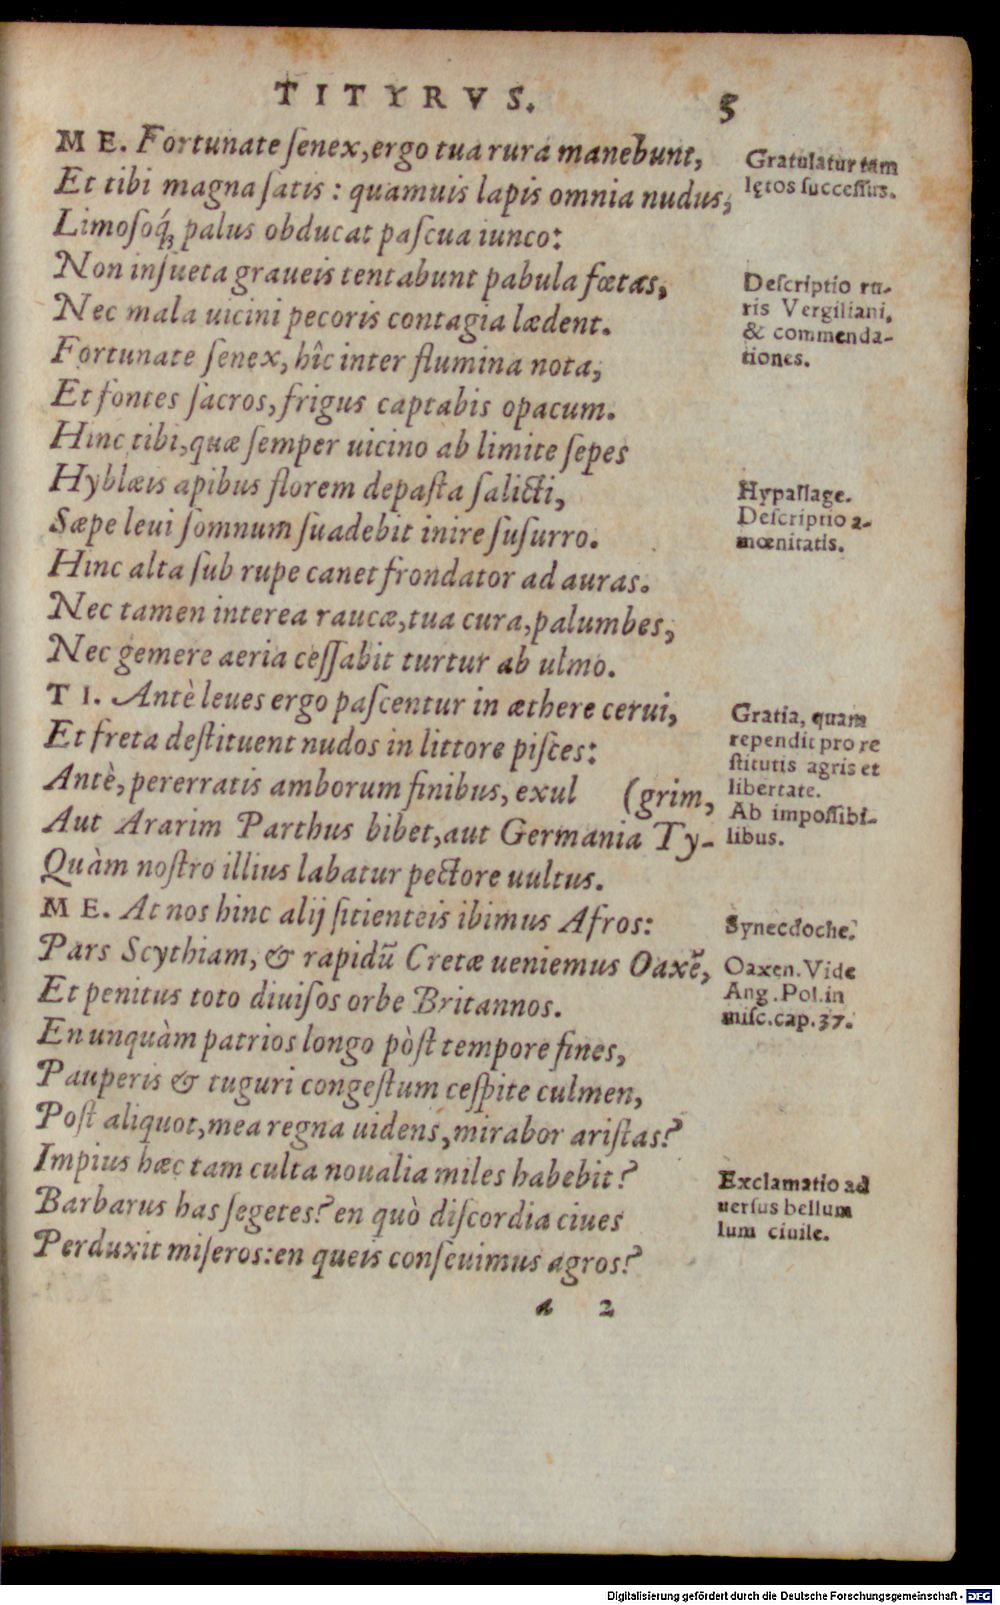 TITYRVS. 5
ME. Fortunate ſenex, ergo tua rura manebunt,
Et tibi magna ſatis: quamuis lapis omnia nudus,
Limoſoq́; palus obducat paſcua iunco:
Non inſueta graueis tentabunt pabula fœtas,
Nec mala uicini pecoris contagia lædent.
Fortunate ſenex, hîc inter flumina nota,
Et fontes ſacros, frigus captabis opacum.
Hinc tibi, quæ ſemper uicino ab limite ſepes
Hyblæis apibus florem depaſta ſalicti,
Sæpe leui ſomnum ſuadebit inire ſuſurro.
Hinc alta ſub rupe canet frondator ad auras.
Nec tamen interea raucæ, tua cura, palumbes,
Nec gemere aeria ceſſabit turtur ab ulmo.
TI. Antè leues ergo paſcentur in æthere cerui,
Et freta deſtituent nudos in littore piſces:
Antè, pererratis amborum finibus, exul (grim,
Aut Ararim Parthus bibet, aut Germania Ty-
Quàm noſtro illius labatur pectore uultus.
ME. At nos hinc alij ſitienteis ibimus Afros:
Pars Scythiam, & rapidū Cretæ ueniemus Oaxē,
Et penitus toto diuiſos orbe Britannos.
En unquàm patrios longo pòſt tempore fines,
Pauperis & tuguri congeſtum ceſpite culmen,
Poſt aliquot, mea regna uidens, mirabor ariſtas?
Impius hæc tam culta noualia miles habebit?
Barbarus has ſegetes? en quò diſcordia ciues
Perduxit miſeros: en queis conſeuimus agros?
a 2
Gratulatur tam
lętos ſucceſſus.
Deſcriptio ru-
ris Vergiliani,
& commenda-
tiones.
Hypallage.
Deſcriptio a-
mœnitatis.
Gratia, quam
rependit pro re
ſtitutis agris et
libertate.
Ab impoſſibi-
libus.
Synecdoche.
Oaxen. Vide
Ang. Pol. in
miſc. cap. 37.
Exclamatio ad
uerſus bellum
lum ciuile.
Digitalisierung gefördert durch die Deutsche Forschungsgemeinschaft - DFG